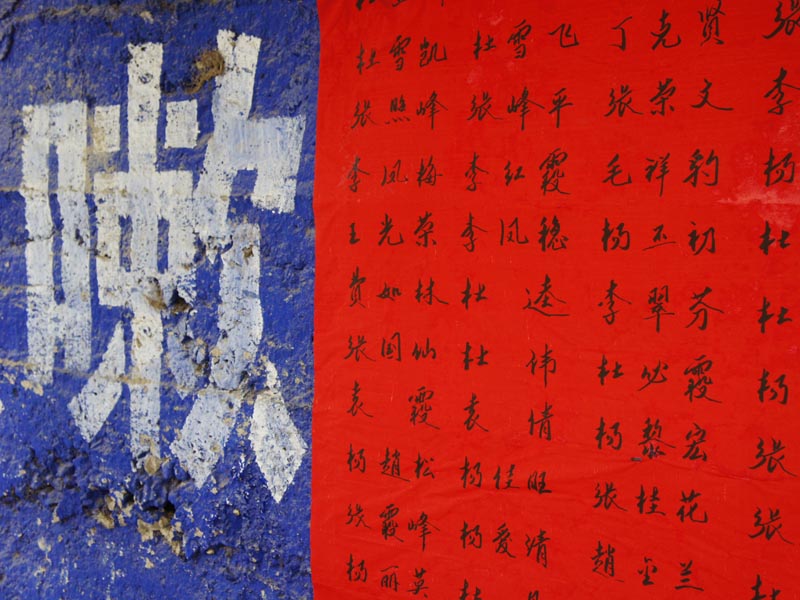 嗽
杜雪凯
张照峰
李凤梅
王光荣
费如林
张国仙
袁 霞
杨赵松
张霞峰
杨丽英
杜雪飞
张峰平
李红霞
李凤稳
杜 逵
杜 伟
袁 情
杨佳旺
杨爱清
丁克贤
张荣文
毛祥豹
杨丕初
李翠芬
杜必霞
杨黎宏
张桂花
赵金兰
张
李
杨
杜
杜
杨
张
张
杜